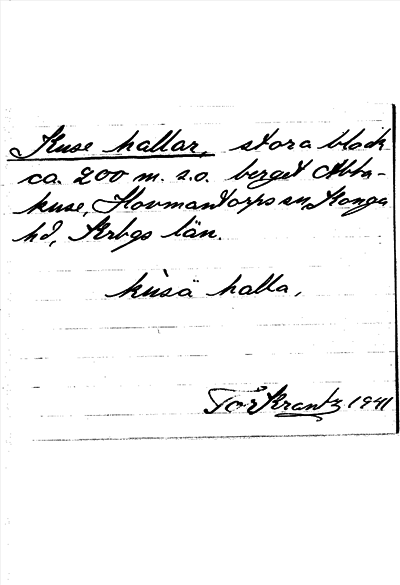 Kuse hallar, stora block
ca. 200 m. s.o. berget Abba-
kuse, Hovmantorps sn, Konga
hd, Krbgs län.
kùsä halla,
Tor Krantz 1941